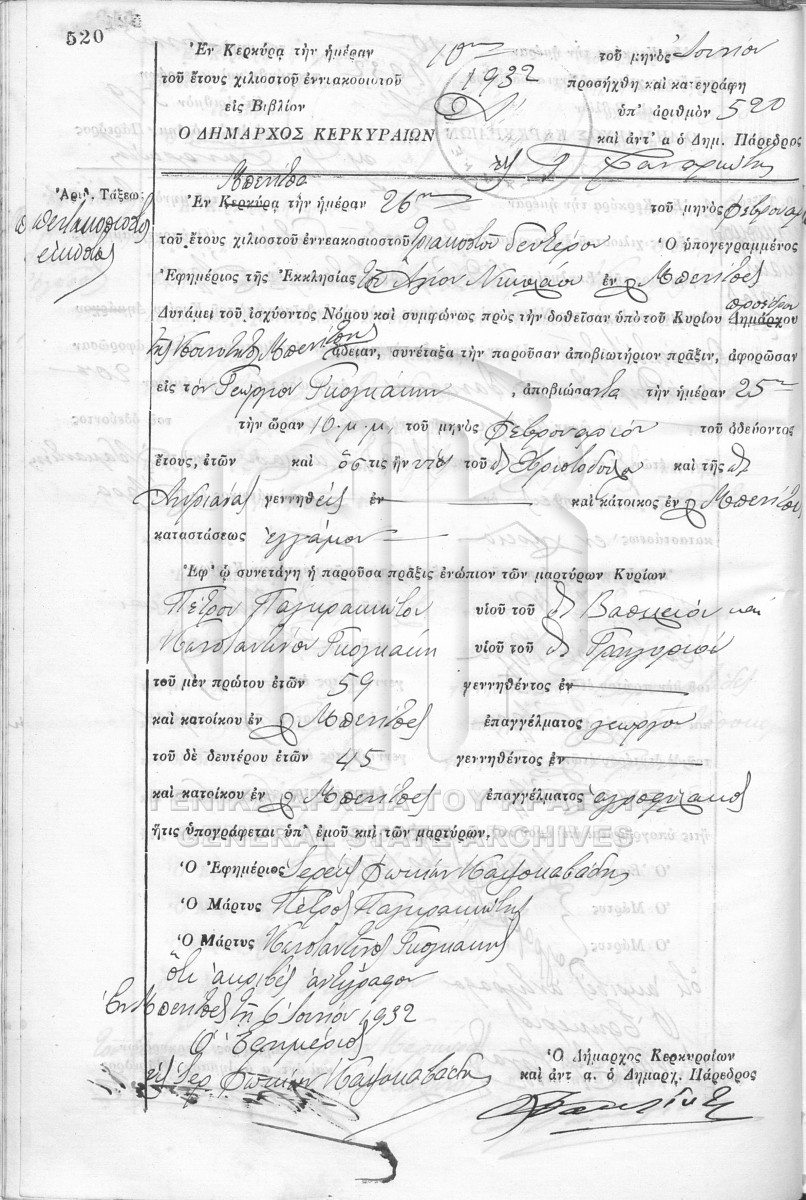 520
Ἐν Κερκύρᾳ τὴν ἡμέραν 10ην τοῦ μηνὸς Ἰουνίου
τοῦ ἔτους χιλιοστοῦ ἐννιακοσιοστοῦ 1932 προσήχθη καὶ κατεγράφη
εἰς Βιβλίον ὑπ' ἀριθμὸν 520
Ο ΔΗΜΑΡΧΟΣ ΚΕΡΚΥΡΑΙΩΝ καὶ ἀντ' α ὁ Δημ. Πάρεδρος
Μπενίτσα
Ἀριθ. Τάξεως Ἐν Κερκύρᾳ τὴν ἡμέραν 26ην τοῦ μηνὸς Φεβρουαρίου
πεντακόσια
εἴκοσι
τοῦ ἔτους χιλιοστοῦ ἐννεακοσιοστοῦ τριακοστοῦ δευτέρου Ὁ ὑπογεγραμμένος
Ἐφημέριος τῆς Ἐκκλησίας τοῦ Ἁγίου Νικολάου ἐν Μπενίτσες
Δυνάμει τοῦ ἰσχύοντος Νόμου καὶ συμφώνως πρὸς τὴν δοθεῖσαν ὑπὸ τοῦ Κυρίου Δημάρχου προέδρου
τῆς Κοινότητος Μπενίτσης ἄδειαν, συνέταξα τὴν παροῦσαν ἀποβιωτήριον πρᾶξιν, ἀφορῶσαν
εἰς τὸν Γεώργιον Γκογκάκην, ἀποβιώσαντα τὴν ἡμέραν 25ην
τὴν ὥραν 10 μ.μ. τοῦ μηνὸς Φεβρουαρίου τοῦ ὁδεύοντος
ἔτους, ἐτῶν καὶ ὅστις ἦν υἱὸς τοῦ Χριστοδούλου καὶ τῆς
Ἀνδριάνας γεννηθεὶς ἐν καὶ κάτοικος ἐν Μπενίτσες
καταστάσεως ἐγγάμου
Ἐφ' ᾧ συνετάγη ἡ παροῦσα πρᾶξις ἐνώπιον τῶν μαρτύρων Κυρίων
Πέτρου Παγκρακιώτου υἱοῦ τοῦ Βασιλείου καὶ
Κωνσταντίνου Γκογκάκη υἱοῦ τοῦ Γρηγορίου
τοῦ μὲν πρώτου ἐτῶν 59 γεννηθέντος ἐν
καὶ κατοίκου ἐν Μπενίτσες ἐπαγγέλματος γεωργοῦ
τοῦ δὲ δευτέρου ἐτῶν 45 γεννηθέντος ἐν
καὶ κατοίκου ἐν Μπενίτσες ἐπαγγέλματος ἀγροφύλακος
ἥτις ὑπογράφεται ὑπ' ἐμοῦ καὶ τῶν μαρτύρων.
ΓΕΝΙΚΑ ΑΡΧΕΙΑ ΤΟΥ ΚΡΑΤΟΥΣ
GENERAL STATE ARCHIVES
Ὁ Ἐφημέριος Ἱερεὺς Φωκίων
Ὁ Μάρτυς Πέτρος Παγκρακιώτης
Ὁ Μάρτυς Κωνσταντῖνος Γκογκάκης
Ὅτι ἀκριβὲς ἀντίγραφον
Ἐν Μπενίτσες τῇ 6 Ἰουνίου 1932
Ὁ Ἐφημέριος
Ἱερ. Φωκίων
Ὁ Δήμαρχος Κερκυραίων
καὶ ἀντ α. ὁ Δημαρχ. Πάρεδρος